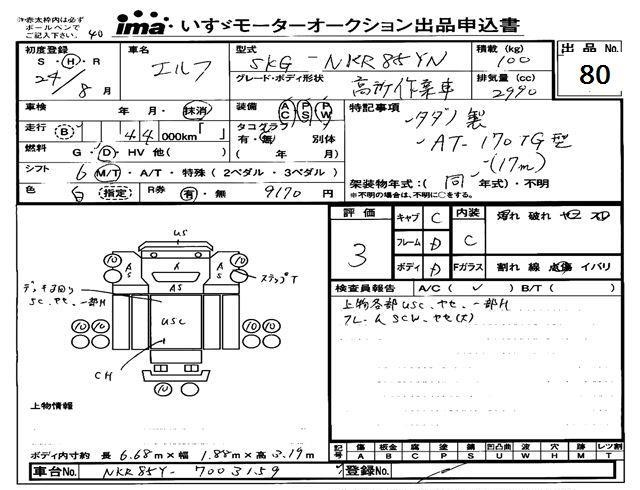 ※赤太枠内は必ず
ボールペンで
ご記入下さい。
40
ima いすゞモーターオークション出品申込書
初度登録 S・H・R 24/8月
車名 エルフ
型式 SKG-NKR85YN
グレード・ボディ形状 高所作業車
積載(kg) 100
排気量(cc) 2990
出品No. 80
車検 年 月・抹消
装備 AC PS PW
特記事項
タダノ製
AT-170TG型
(17m)
走行 (B) 44 000km「 」
タコグラフ 有・無 別体
燃料 G・D・HV 他( )
( 年 月)
シフト 6 M/T・A/T・特殊(2ペダル・3ペダル)
架装物年式:( 同 年式)・不明
※不明の場合は、不明に○をする。
色 白 (指定) R券 有・無 9170円
評価 3
キャブ C
内装 C
汚れ 破れ ヤニ スレ
フレーム D
ボディ D
Fガラス 割れ 線 点傷 イバリ
検査員報告 A/C( ✓ ) B/T( )
上物各部USC、サビ、一部H
フレームSCW、サビ(大)
US
A
S
A
S
A
AS
ステップT
SC、サビ、一部H
USC
CH
10 10 10 10 10 10
上物情報
ボディ内寸約 長 6.68m×幅 1.88m×高 3.19m
記号 傷 板金 腐 塗 錆 凹凸曲 波 穴 跡 レツ割
A B C P S U W H M T
車台No. NKR85Y-7003159
登録No.